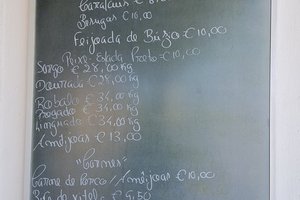 Carapaus € 8
Besugos € 10,00
Feijoada de Búzio € 10,00
Peixe Espada Preto € 10,00
Sargo € 28,00 kg
Dourada € 28,00 kg
Robalo € 34,00 kg
Pregado € 34,00 kg
Linguado € 34,00 kg
Amêijoas € 13,00
"Carnes"
Carne de Porco / Amêijoas € 10,00
Bife de vitela € 9,50